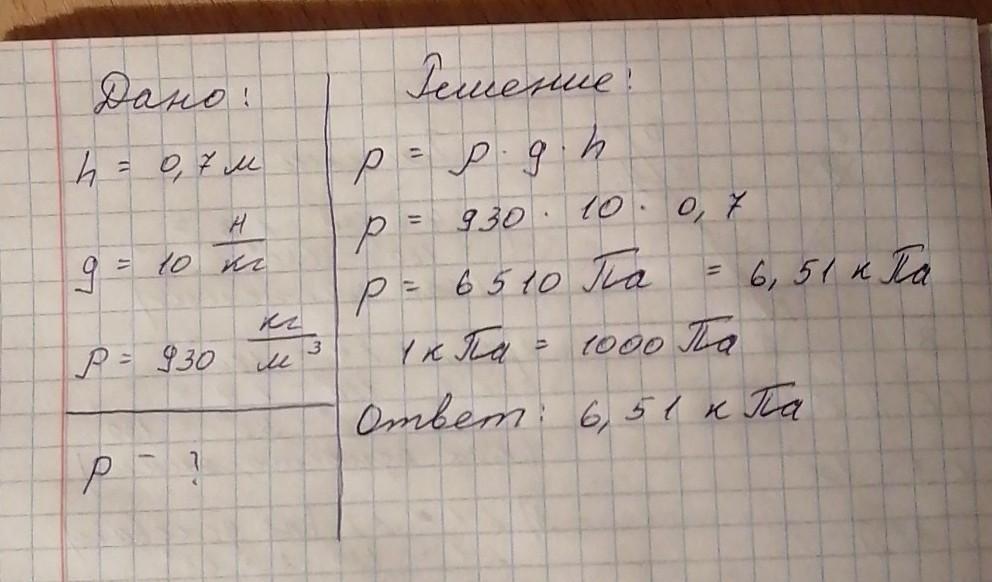 Дано:
h = 0,7 м
g = 10 Н/кг
ρ = 930 кг/м³
p - ?
Решение:
p = ρ · g · h
p = 930 · 10 · 0,7
p = 6510 Па = 6,51 кПа
1 кПа = 1000 Па
Ответ: 6,51 кПа